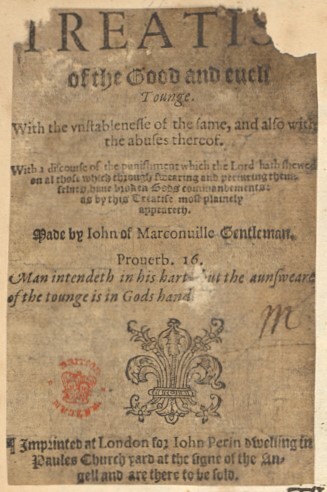 TREATIS
of the Good and euell
Tounge.
With the vnstablenesse of the same, and also with
the abuses thereof.
With a discourse of the punishment which the Lord hath shewed
on al those which through swearing and periuring them
selues, haue broken Gods commandements:
as by this Treatise most plainely
appeareth.
Made by Iohn of Marconuille Gentleman.
Prouerb. 16.
Man intendeth in his hart but the aunsweare
of the tounge is in Gods hand
M
BRITISH
MUSEUM
¶ Imprinted at London for Iohn Perin dwelling in
Paules Church yard at the signe of the An-
gell and are there to be sold.